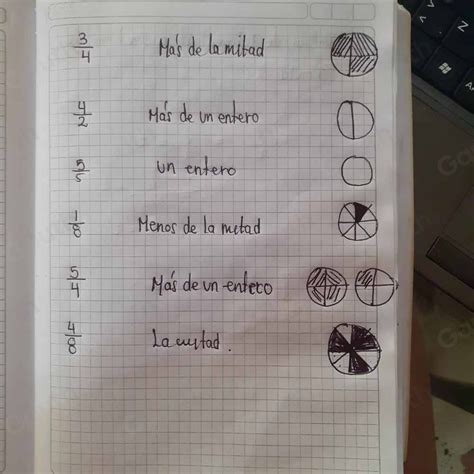 3/4 Más de la mitad
4/2 Más de un entero
5/5 un entero
1/8 Menos de la metad
5/4 Más de un entero
4/8 La mitad.